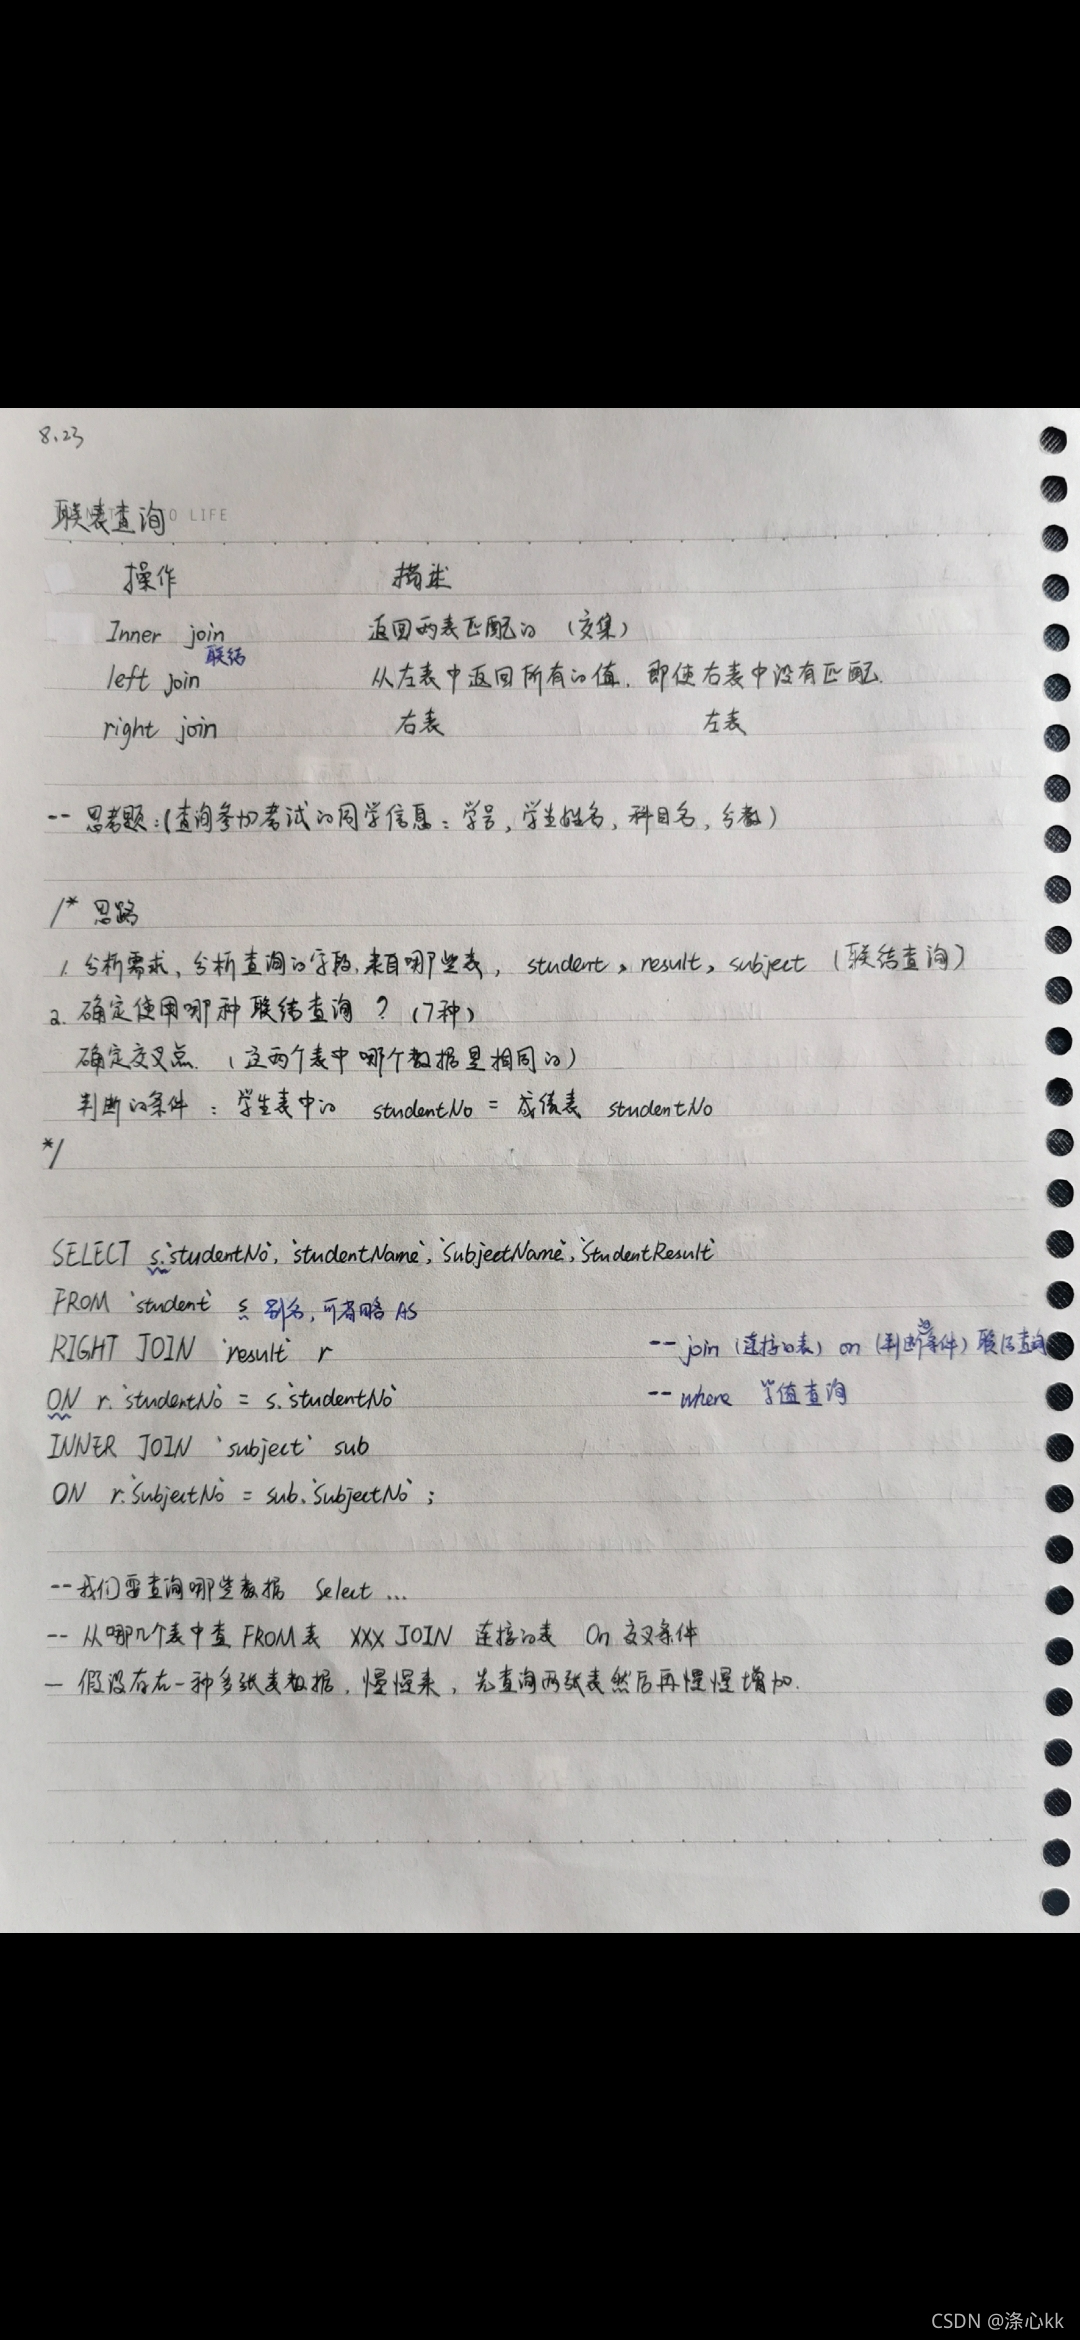 8.23
联表查询 O LIFE
操作 描述
Inner join 返回两表匹配的 (交集)
联结
left join 从左表中返回所有的值, 即使右表中没有匹配.
right join 右表 左表
-- 思考题:(查询参加考试的同学信息: 学号, 学生姓名, 科目名, 分数)
/* 思路
1. 分析需求, 分析查询的字段, 来自哪些表, student, result, subject (联结查询)
2. 确定使用哪种联结查询? (7种)
确定交叉点. (这两个表中哪个数据是相同的)
判断的条件: 学生表中的 studentNo = 成绩表 studentNo
*/
SELECT s.`studentNo`, `studentName`, `SubjectName`, `StudentResult`
FROM `student` s 别名, 可省略 AS
RIGHT JOIN `result` r -- join (连接的表) on (判断的条件) 联结查询
ON r.`studentNo` = s.`studentNo` -- where 等值查询
INNER JOIN `subject` sub
ON r.`SubjectNo` = sub.`SubjectNo`;
-- 我们需查询哪些数据 Select ...
-- 从哪几个表中查 FROM 表 XXX JOIN 连接的表 On 交叉条件
— 假设存在一种多张表数据, 慢慢来, 先查询两张表然后再慢慢增加.
CSDN @涤心kk